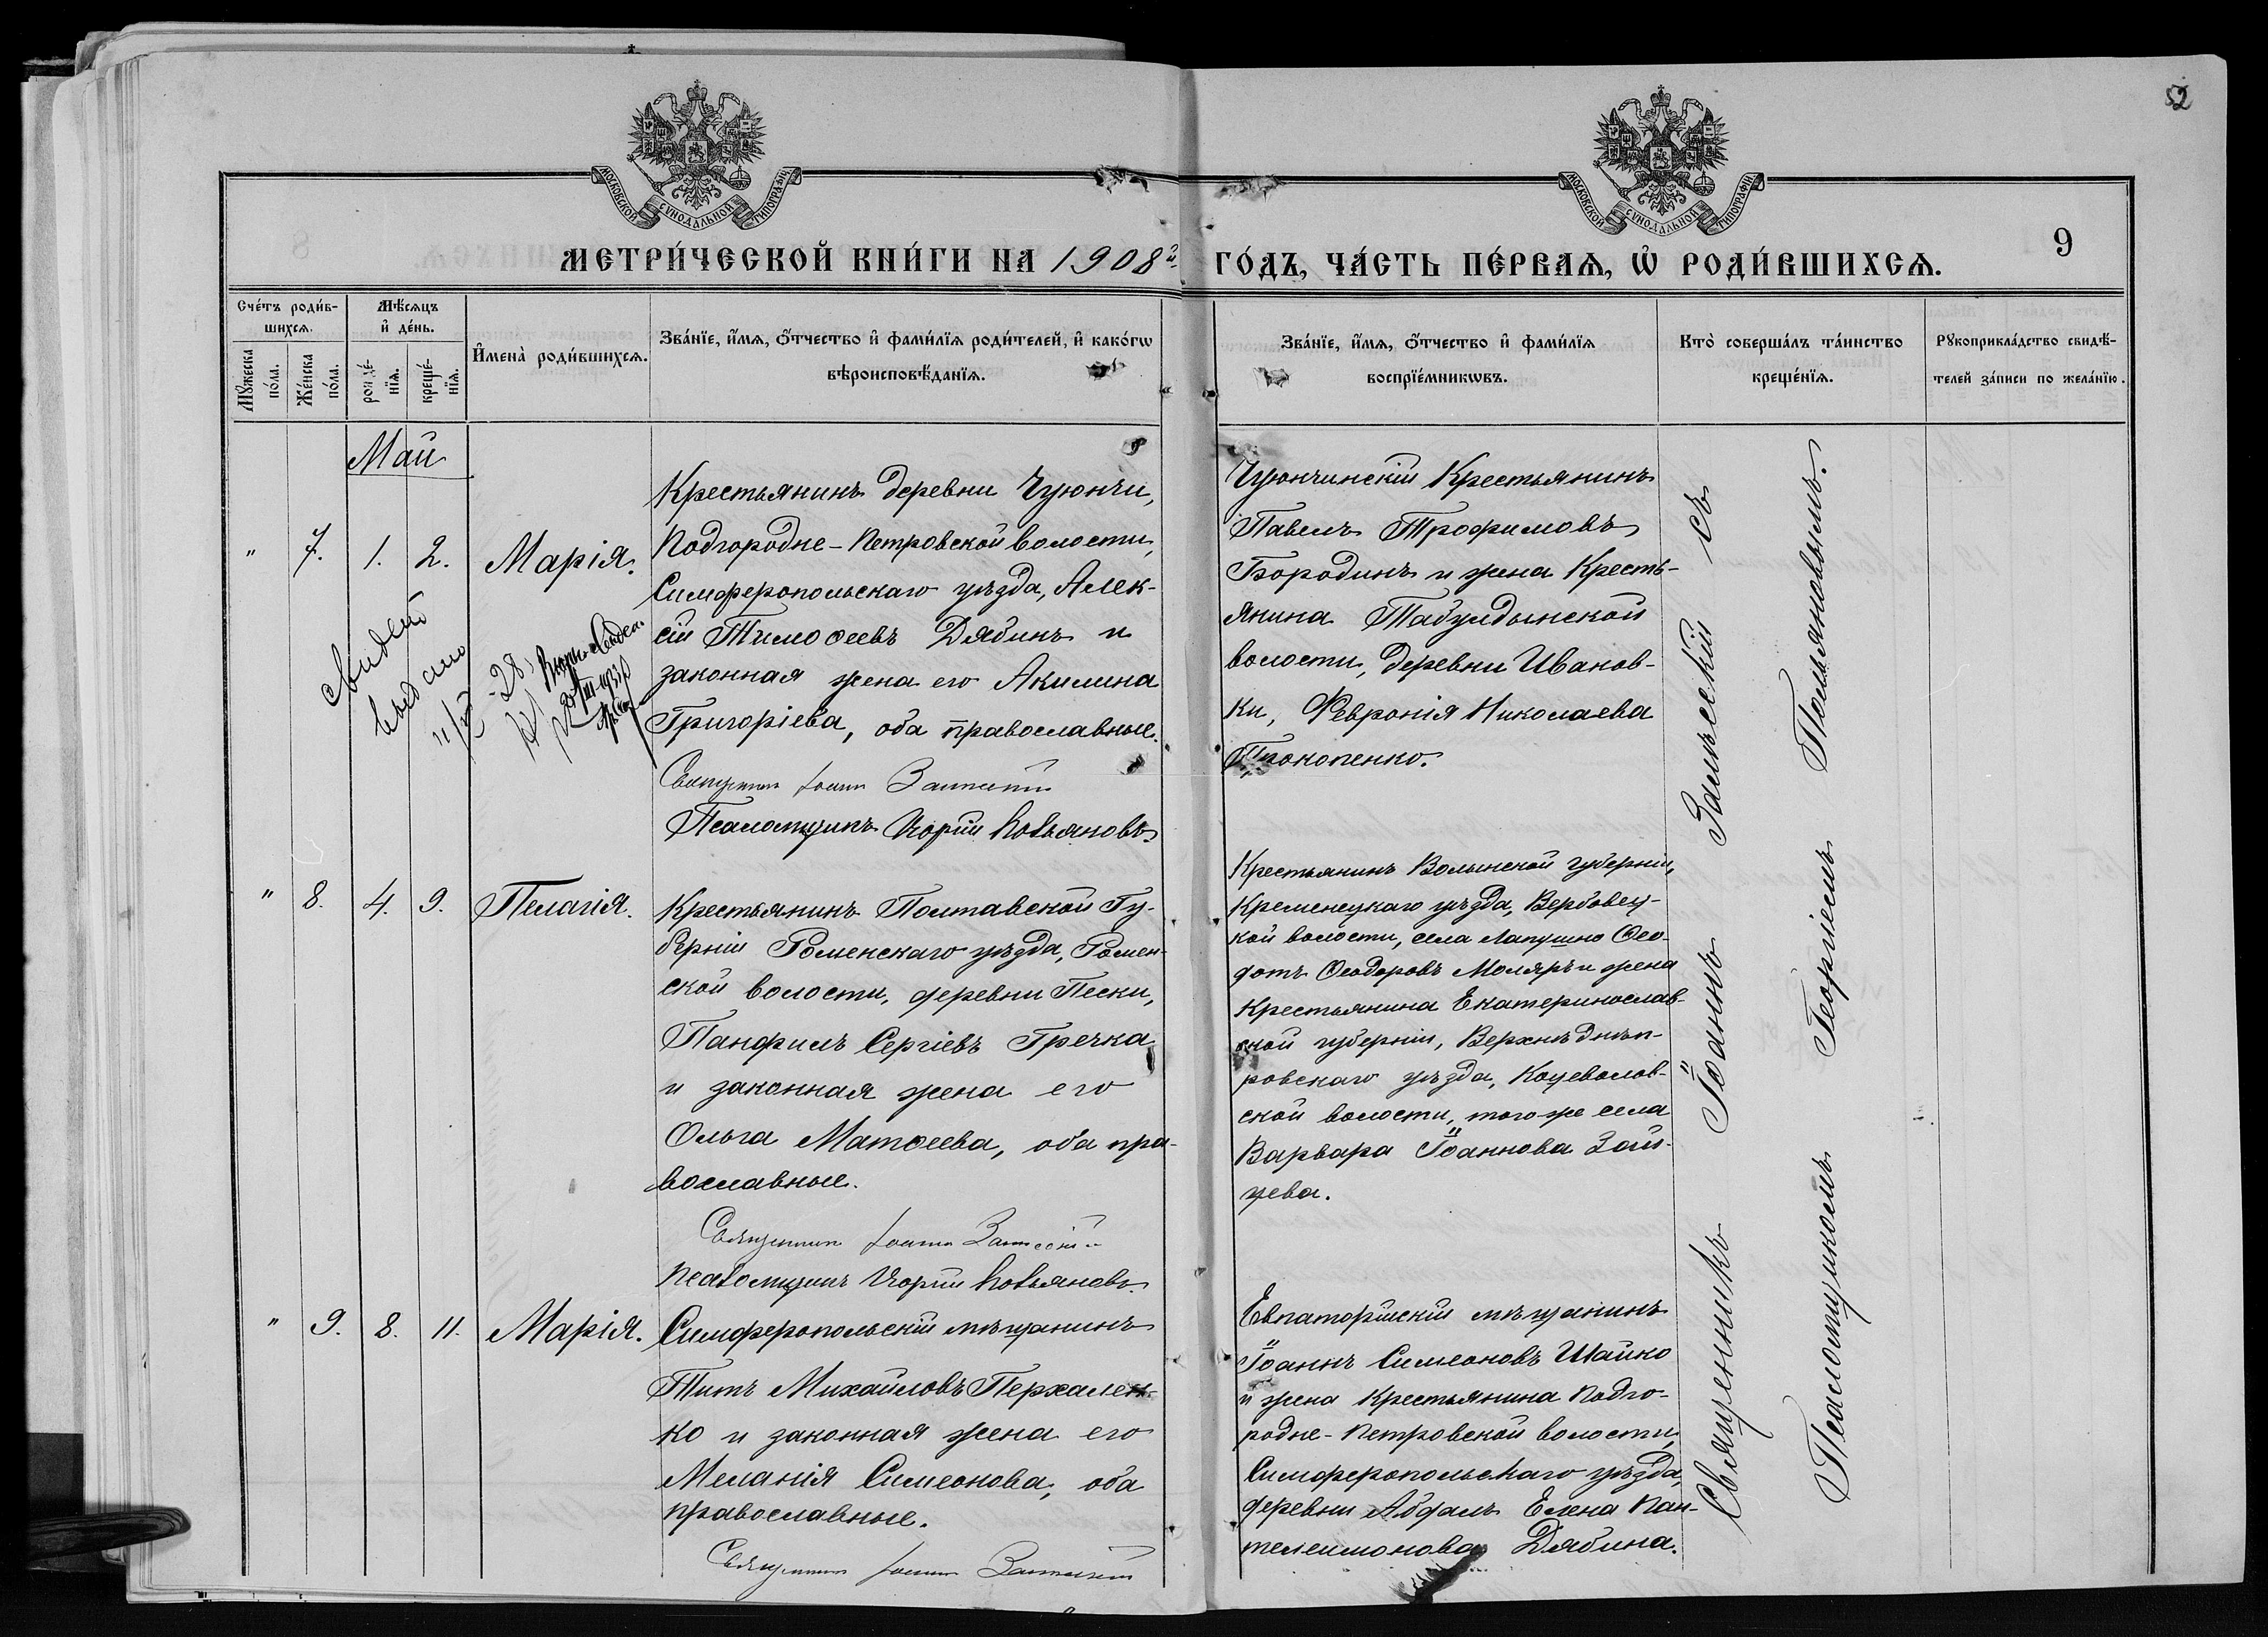 52
МОСКОВСКОЙ СУНОДАЛЬНОЙ ТИПОГРАФІИ
МОСКОВСКОЙ СУНОДАЛЬНОЙ ТИПОГРАФІИ
МЕТРИ́ЧЕСКОЙ КНИ́ГИ НА 1908й
ГО́ДЪ, ЧА́СТЬ ПЕ́РВАѦ, Ѡ҆ РОДИ́ВШИХСѦ.
9
Сче́тъ роди́в-
шихсѧ.
Мѣ́сѧцъ
и҆ де́нь.
Мꙋ́жеска
по́ла.
Же́нска
по́ла.
рожде́-
нїѧ.
креще́-
нїѧ.
И҆мена̀ роди́вшихсѧ.
Зва́нїе, и҆́мѧ, ѻ҆́тчество и҆ фами́лїѧ роди́телей, и҆ како́гѡ
вѣроисповѣ́данїѧ.
Зва́нїе, и҆́мѧ, ѻ҆́тчество и҆ фами́лїѧ
воспрїе́мникѡвъ.
Кто̀ соверша́лъ та́инство
креще́нїѧ.
Рꙋкоприкла́дство свидѣ́-
телей за́писи по жела́нїю.
Май
" 7. 1. 2. Марія.
Крестьянинъ деревни Чуюнчи,
Подгородне-Петровской волости,
Симферопольскаго уѣзда, Алек-
сій Тимоѳеевъ Дябинъ и
законная жена его Акилина
Григоріева, оба православные.
Священникъ Іоаннъ
Псаломщикъ
Свидет
выдано
-28
Чуюнчинскій Крестьянинъ
Павелъ Трофимовъ
Бородинъ и жена Кресть-
янина Табулдынской
волости, деревни Иванов-
ки, Февронія Николаева
Прокопенко.
" 8. 4. 9. Пелагія.
Крестьянинъ Полтавской Гу-
берніи Роменскаго уѣзда, Ромен-
ской волости, деревни Пески,
Панфилъ Сергіевъ Гречка
и законная жена его
Ольга Матѳеева, оба пра-
вославные.
Священникъ Іоаннъ
Псаломщикъ
Крестьянинъ Волынской губерніи,
Кременецкаго уѣзда, Вербовец-
кой волости, села Лапушно Ѳео-
дотъ Ѳеодоровъ Моляръ и жена
Крестьянина Екатеринослав-
ской губерніи, Верхнѣднѣп-
ровскаго уѣзда, Коцеволов-
ской волости, того же села
Варвара Іоаннова Зай-
цева.
" 9. 8. 11. Марія.
Симферопольскій мѣщанинъ
Титъ Михайловъ Перхален-
ко и законная жена его
Меланія Симеонова, оба
православные.
Священникъ Іоаннъ
Евпаторійскій мѣщанинъ
Іоаннъ Симеоновъ Шайко
и жена Крестьянина Подго-
родне-Петровской волости,
Симферопольскаго уѣзда,
деревни Абдалъ Елена Пан-
телеимонова Дябина.
Священникъ Іоаннъ Замѣсскій съ
Псаломщикомъ Георгіемъ